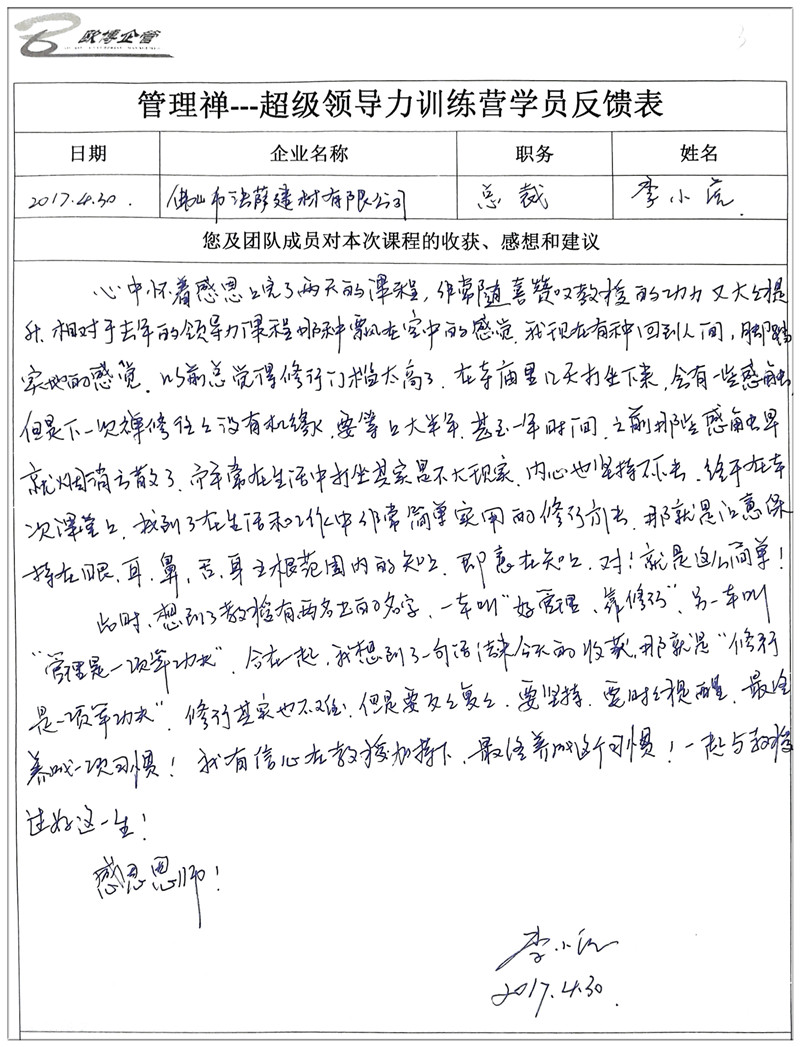 欧博企管
管理禅---超级领导力训练营学员反馈表
日期 企业名称 职务 姓名
2017.4.30. 佛山市法萨建材有限公司 总裁 李小
您及团队成员对本次课程的收获、感想和建议
心中怀着感恩上完了两天的课程，非常随喜赞叹教授的功力又大大提
升，相对于去年的领导力课程那种飘在空中的感觉，我现在有种回到人间，脚踏
实地的感觉，以前总觉得修行门槛太高了，在寺庙里几天打坐下来，会有一些感触，
但是下一次禅修往往没有机缘，要等上大半年，甚至一年时间，之前那些感触早
就烟消云散了，而平常在生活中打坐其实是不大现实，内心也坚持不下去，终于在本
次课堂上，找到了在生活和工作中非常简单实用的修行方法，那就是让意保
持在眼、耳、鼻、舌、身五根范围内的知上，即意在知上，对！就是这么简单！
此时，想到了教授有两本书的名字，一本叫“好管理，靠修行”，另一本叫
“管理是一项笨功夫”，合在一起，我想到了一句话结束今天的收获，那就是“修行
是一项笨功夫”，修行其实也不难，但是要反反复复，要坚持，要时时提醒，最终
养成一项习惯！我有信心在教授加持下，最终养成这个习惯！一起与教授
过好这一生！
感恩恩师！
李小
2017.4.30.